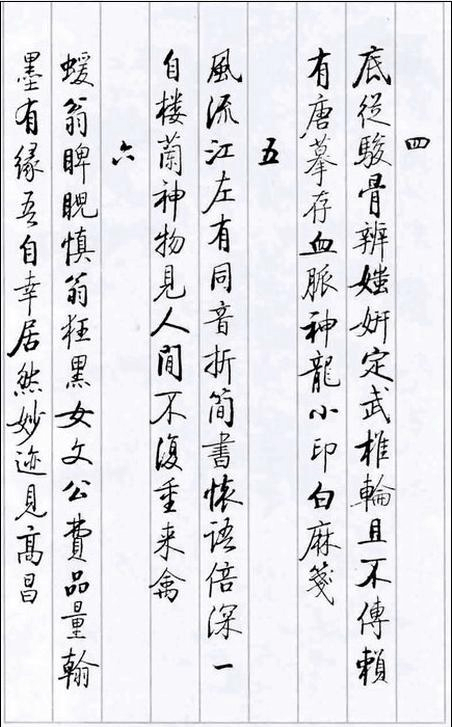 四
底從駿骨辨媸妍定武椎輪且不傳賴
有唐摹存血脈神龍小印白麻箋
五
風流江左有同音折簡書懷語倍深一
自楼蘭神物見人間不復重来禽
六
蝯翁睥睨慎翁狂黑女文公費品量翰
墨有緣吾自幸居然妙迹見高昌